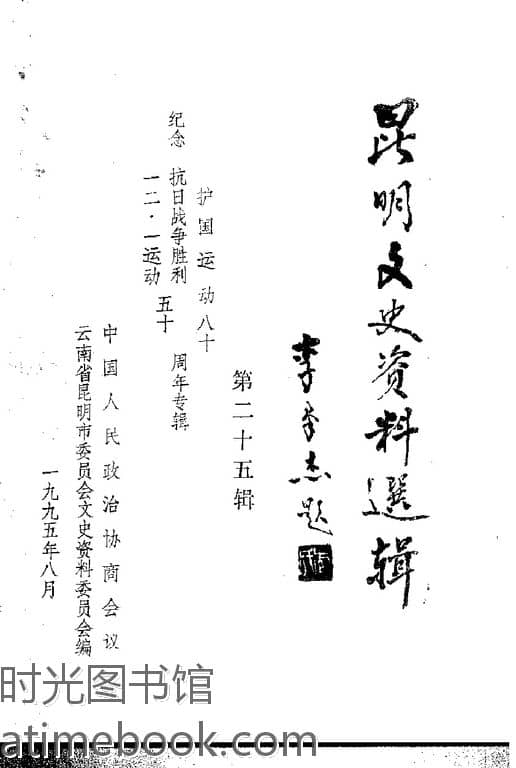 昆明文史资料選辑
李 杰题
第二十五辑
护国运动八十
纪念 抗日战争胜利 周年专辑
一二·一运动 五十
中国人民政治协商会议
云南省昆明市委员会文史资料委员会编
一九九五年八月
时光图书馆
atimebook.com